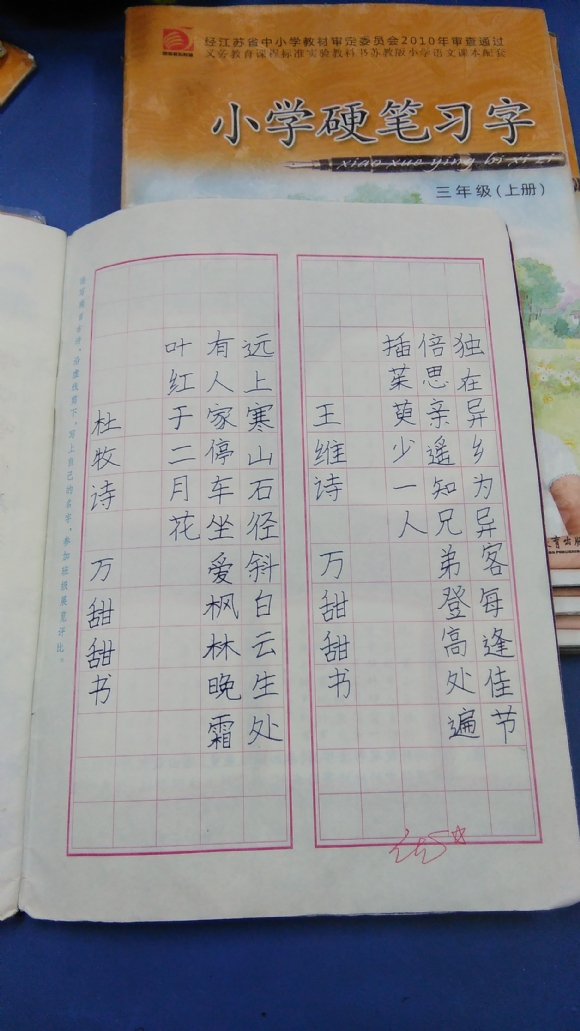 经江苏省中小学教材审定委员会2010年审查通过
义务教育课程标准实验教科书苏教版小学语文课本配套
小学硬笔习字
xiao xue ying bi xi zi
三年级(上册)
独在异乡为异客每逢佳节
倍思亲遥知兄弟登高处遍
插茱萸少一人
王维诗 万甜甜书
远上寒山石径斜白云生处
有人家停车坐爱枫林晚霜
叶红于二月花
杜牧诗 万甜甜书
沿虚线剪下，写上自己的名字，参加班级展览评比。